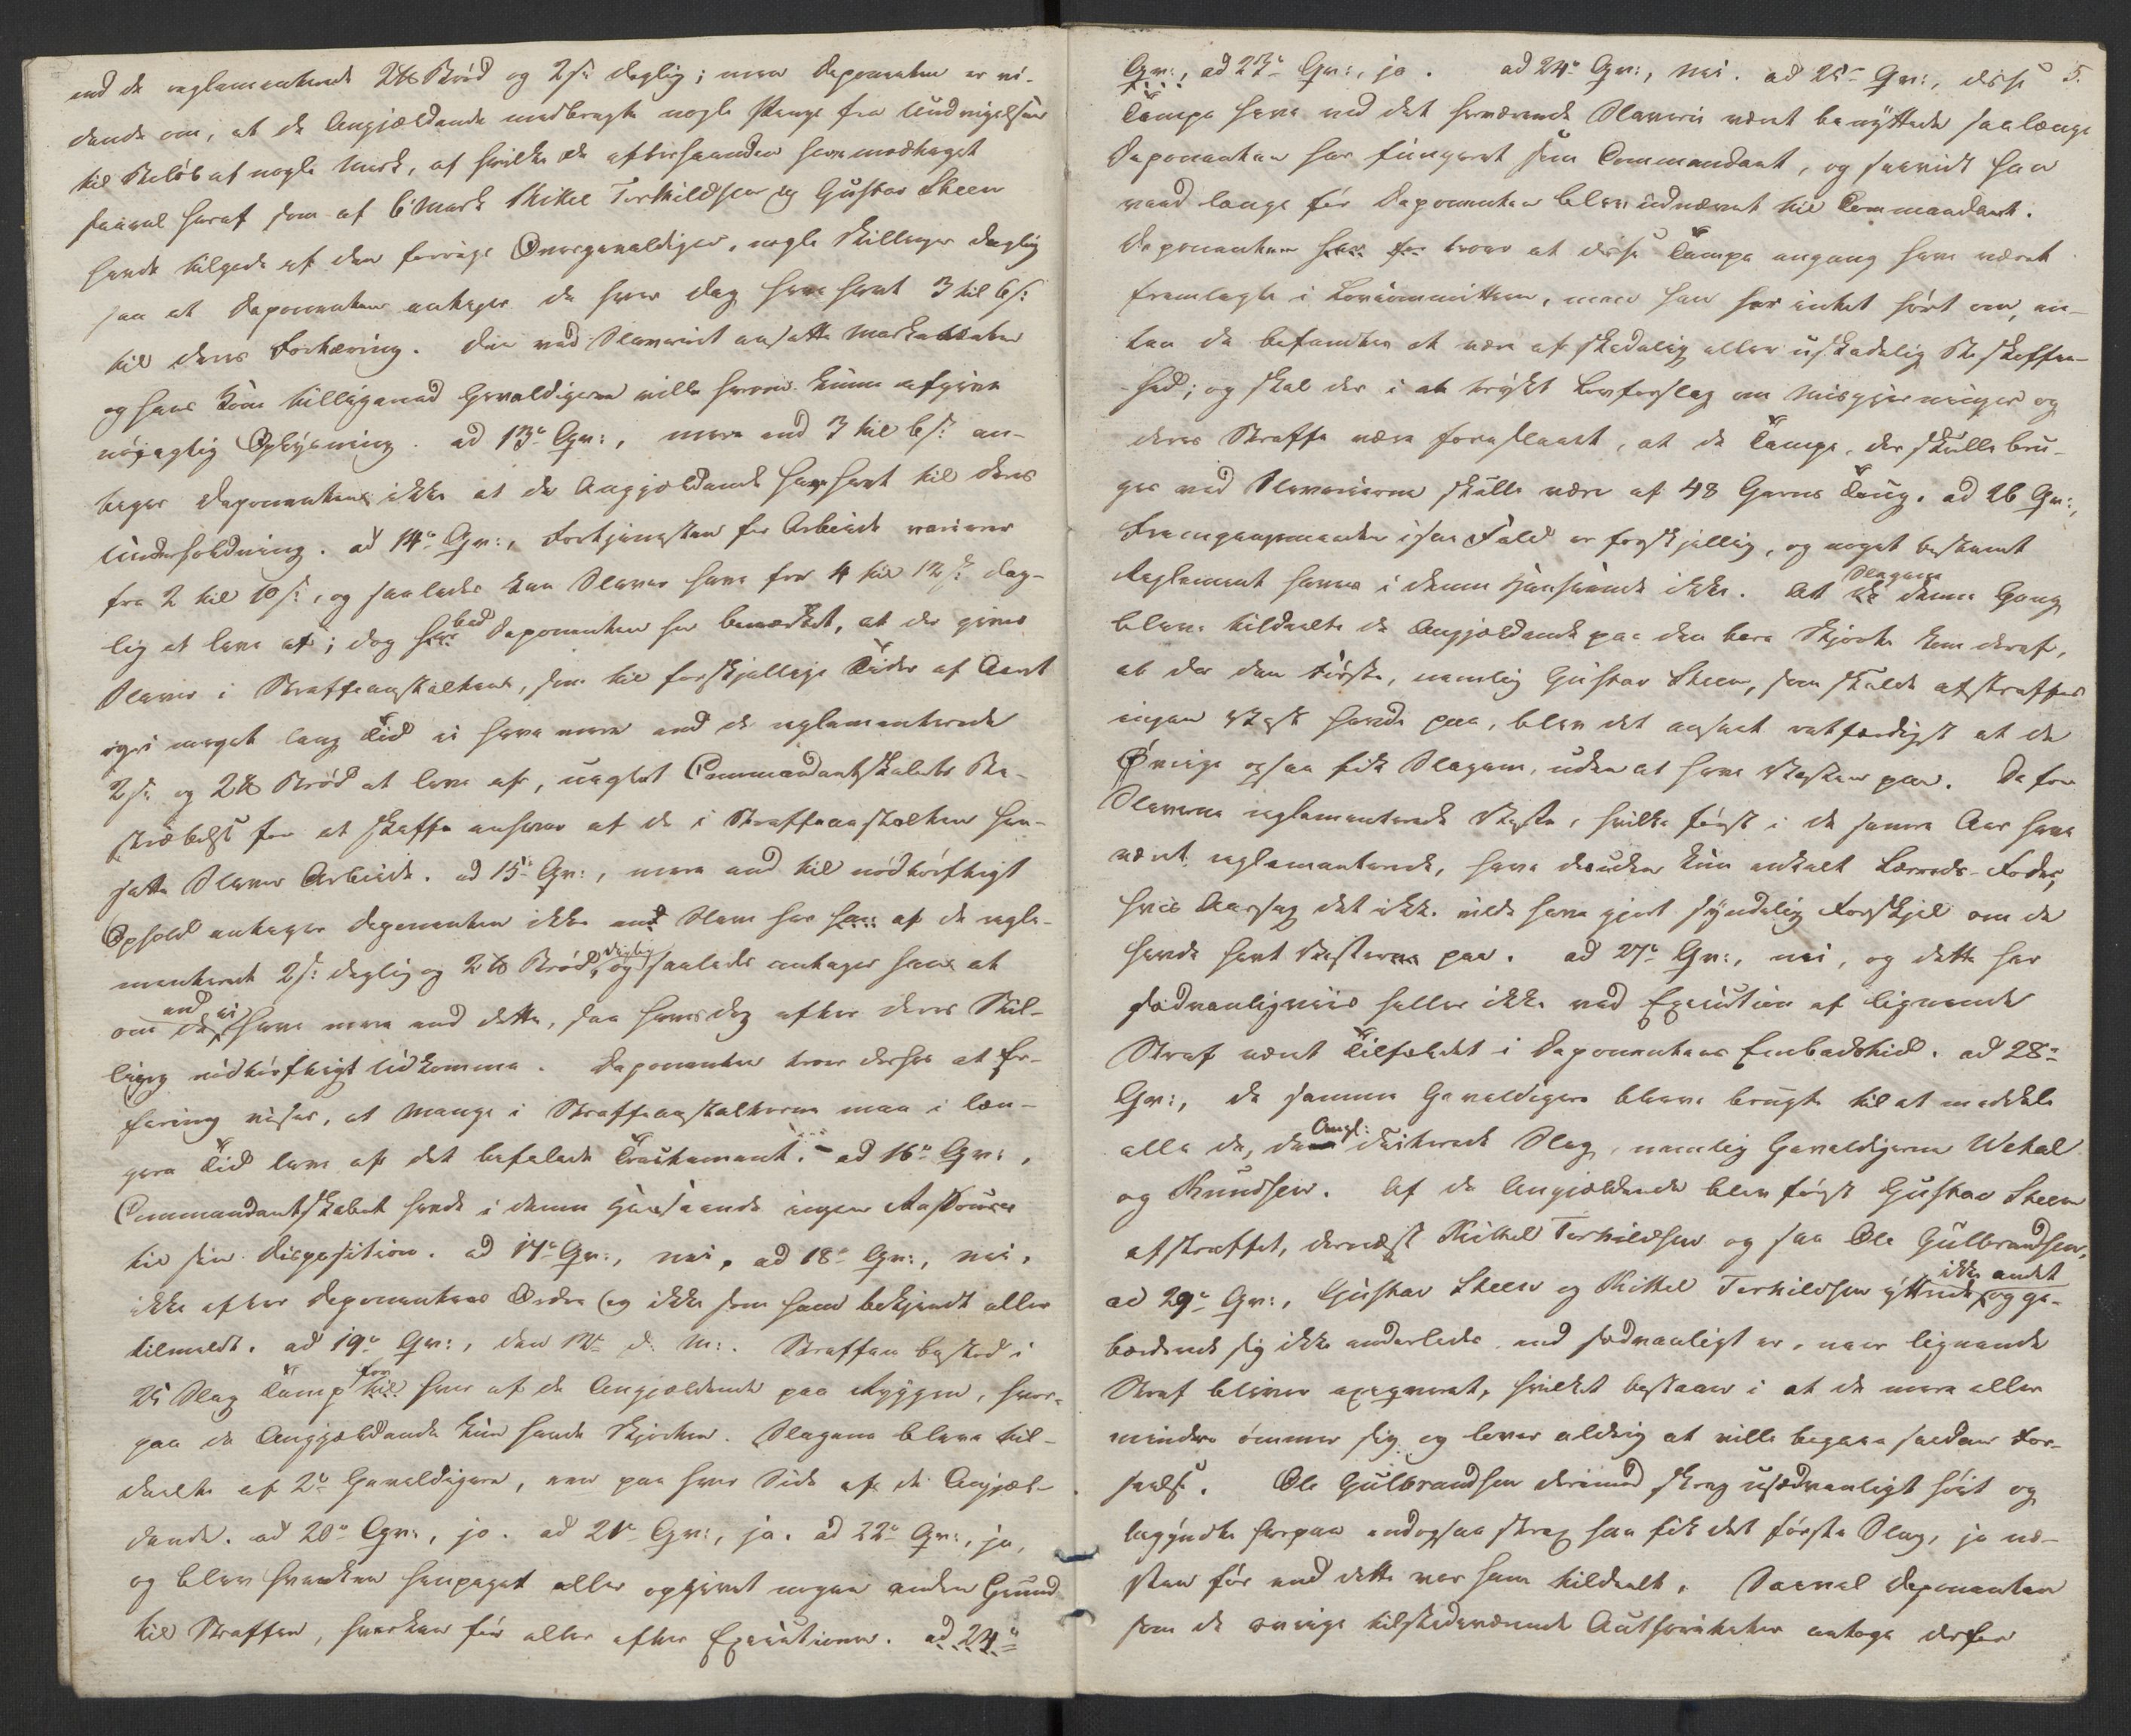 end de reglementerede 2 ℔ Brød og 2 s. daglig; men Deponenten er vi-
dende om, at de Angjældende medbragte nogle Penge fra Undvigelsen
til Beløb af nogle Mark, af hvilke de efterhaanden have modtaget
saavel heraf som af 6 Mark Kittel Torkildsen og Gustav Steen
havde tilgode af den forrige Overgevaldiger, nogle Skillinger daglig
saa at Deponenten antager de hver Dag have havt 3 til 6 s.
til deres Fortæring. Den ved Slaveriet ansatte Marketenter
og hans Kone tilligemed Gevaldigeren ville herom kunne afgive
nøjagtig Oplysning. ad 13de Qv:, mere end 3 til 6 s. an-
tager Deponenten ikke at de Angjældende have havt til deres
Underholdning. ad 14de Qv:, Fortjenesten for Arbeide varierer
fra 2 til 10 s., og saaledes kan Slaver have fra 4 til 12 s. dag-
lig at leve af; dog bad Deponenten sig bemærket, at der gives
Slaver i Strafanstalten, som til forskjellige Tider af Aaret
og i meget lang Tid ei have mere end de reglementerede
2 s. og 2 ℔ Brød at leve af, uagtet Commandantskabets Be-
stræbelse for at skaffe enhver af de i Strafanstalten hen-
satte Slaver Arbeide. ad 15de Qv:, mere end til nødtørftigt
Ophold antager Deponenten ikke en Slave har af de regle-
menterede 2 s. daglig og 2 ℔ Brød daglig, og saaledes antager han at
om end de ei have mere end dette, saa have dog efter deres Stil-
ling nødtørftigt Udkomme. Deponenten troer derfor at Er-
faring viser, at mange i Strafanstalterne maa i læn-
gere Tid leve af det befalede Tractament. – ad 16de Qv:,
Commandantskabet havde i denne Henseende ingen Ressourcer
til sin Disposition. ad 17de Qv:, nei, ad 18de Qv:, nei,
ikke efter Deponentens Ordre (og ikke som ham bekjendt eller
tilmeldt. ad 19de Qv:, den 12te d. M:. Straffen bestod i
25 Slag Tamp for hver af de Angjældende paa Ryggen, hvor-
paa de Angjældende kun havde Skjorten. Slagene bleve til-
deelte af 2de Gevaldigere, een paa hver Side af de Angjæl-
dende. ad 20de Qv:, jo. ad 21de Qv:, ja. ad 22de Qv:, ja,
og blev hverken henpeget eller opgivet nogen anden Grund
til Straffen, hverken før eller efter Executionen. ad 24de
Qv:, ad 23de Qv:, jo. ad 24de Qv:, nei. ad 25de Qv:, disse 5.
Tampe have ved det herværende Slaveri været benyttede saalænge
Deponenten har fungeret som Commandant, og saavidt han
veed længe før Deponenten blev udnævnt til Commandant.
Deponenten troer at disse Tampe engang have været
fremlagte i Lovcommitteen, men han har intet hørt om, en-
ten de befandtes at være af skadelig eller uskadelig Beskaffen-
hed; og skal der i et trykt Lovforslag om Misgjerninger og
deres Straffe være foreslaaet, at de Tampe, der skulle bru-
ges ved Slaverierne skulle være af 48 Garns Toug. ad 26 Qv:,
Fremgangsmaaden i saa Fald er forskjellig, og noget bestemt
Reglement haves i denne Henseende ikke. At Slagene denne Gang
bleve tildeelte de Angjældende paa den bare Skjorte kom deraf,
at da den første, nemlig Gustav Steen, som skulde afstraffes
ingen Vest havde paa, blev det anseet retfærdigst at de
Øvrige ogsaa fik Slagene, uden at have Vesten paa. De for
Slaverne reglementerede Veste, hvilke først i de senere Aar have
været reglementerede, have desuden kun enkelt Lærreds-Foder,
hvis Aarsag det ikke vilde have gjort synderlig Forskjel om de
havde havt Vesterne paa. ad 27de Qv:, nei, og dette har
sædvanligviis heller ikke ved Execution af lignende
Straf været Tilfældet i Deponentens Embedstid. ad 28de
Qv:, de samme Gevaldigere bleve brugte til at meddele
alle de, Angl: dicterede Slag, nemlig Gevaldigerne Wetal
og Knudsen. Af de Angjældende blev først Gustav Steen
afstraffet, dernæst Kittel Torkildsen og saa Ole Gulbrandsen,
ad 29de Qv:, Gustav Steen og Kittel Torkildsen yttrede ikke andet og ge-
bærdede sig ikke anderledes end sædvanligt er, naar lignende
Straf bliver exeqveret, hvilket bestaaer i at de mere eller
mindre ømmer sig og lover aldrig at ville begaae saadan For-
seelse. Ole Gulbrandsen derimod skreg usædvanligt høit og
begyndte herpaa endogsaa strax han fik det første Slag, ja næ-
sten før end dette var ham tildeelt. Saavel Deponenten
som de øvrige tilstedeværende Authoriteter antoge derfor